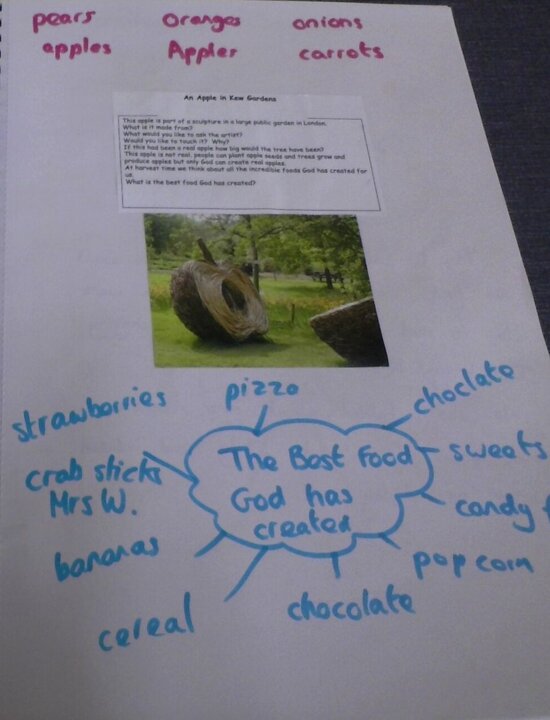 pears Oranges onions
apples Apples carrots
An Apple in Kew Gardens
This apple is part of a sculpture in a large public garden in London.
What is it made from?
What would you like to ask the artist?
Would you like to touch it? Why?
If this had been a real apple how big would the tree have been?
This apple is not real, people can plant apple seeds and trees grow and
produce apples but only God can create real apples.
At harvest time we think about all the incredible foods God has created for
us.
What is the best food God has created?
pizza
choclate
strawborries
The Best Food
God has
created
sweets
crab sticks
Mrs W.
candy
bananas
pop corn
chocolate
cereal